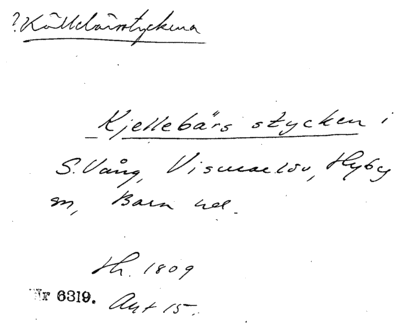 ? Källebärsstyckena
Kjellebärs stycken i
S. Vång, Vismarlöv, Hyby
sn, Bara hd.
Hr. 1809
Nr 6319. Akt 15.